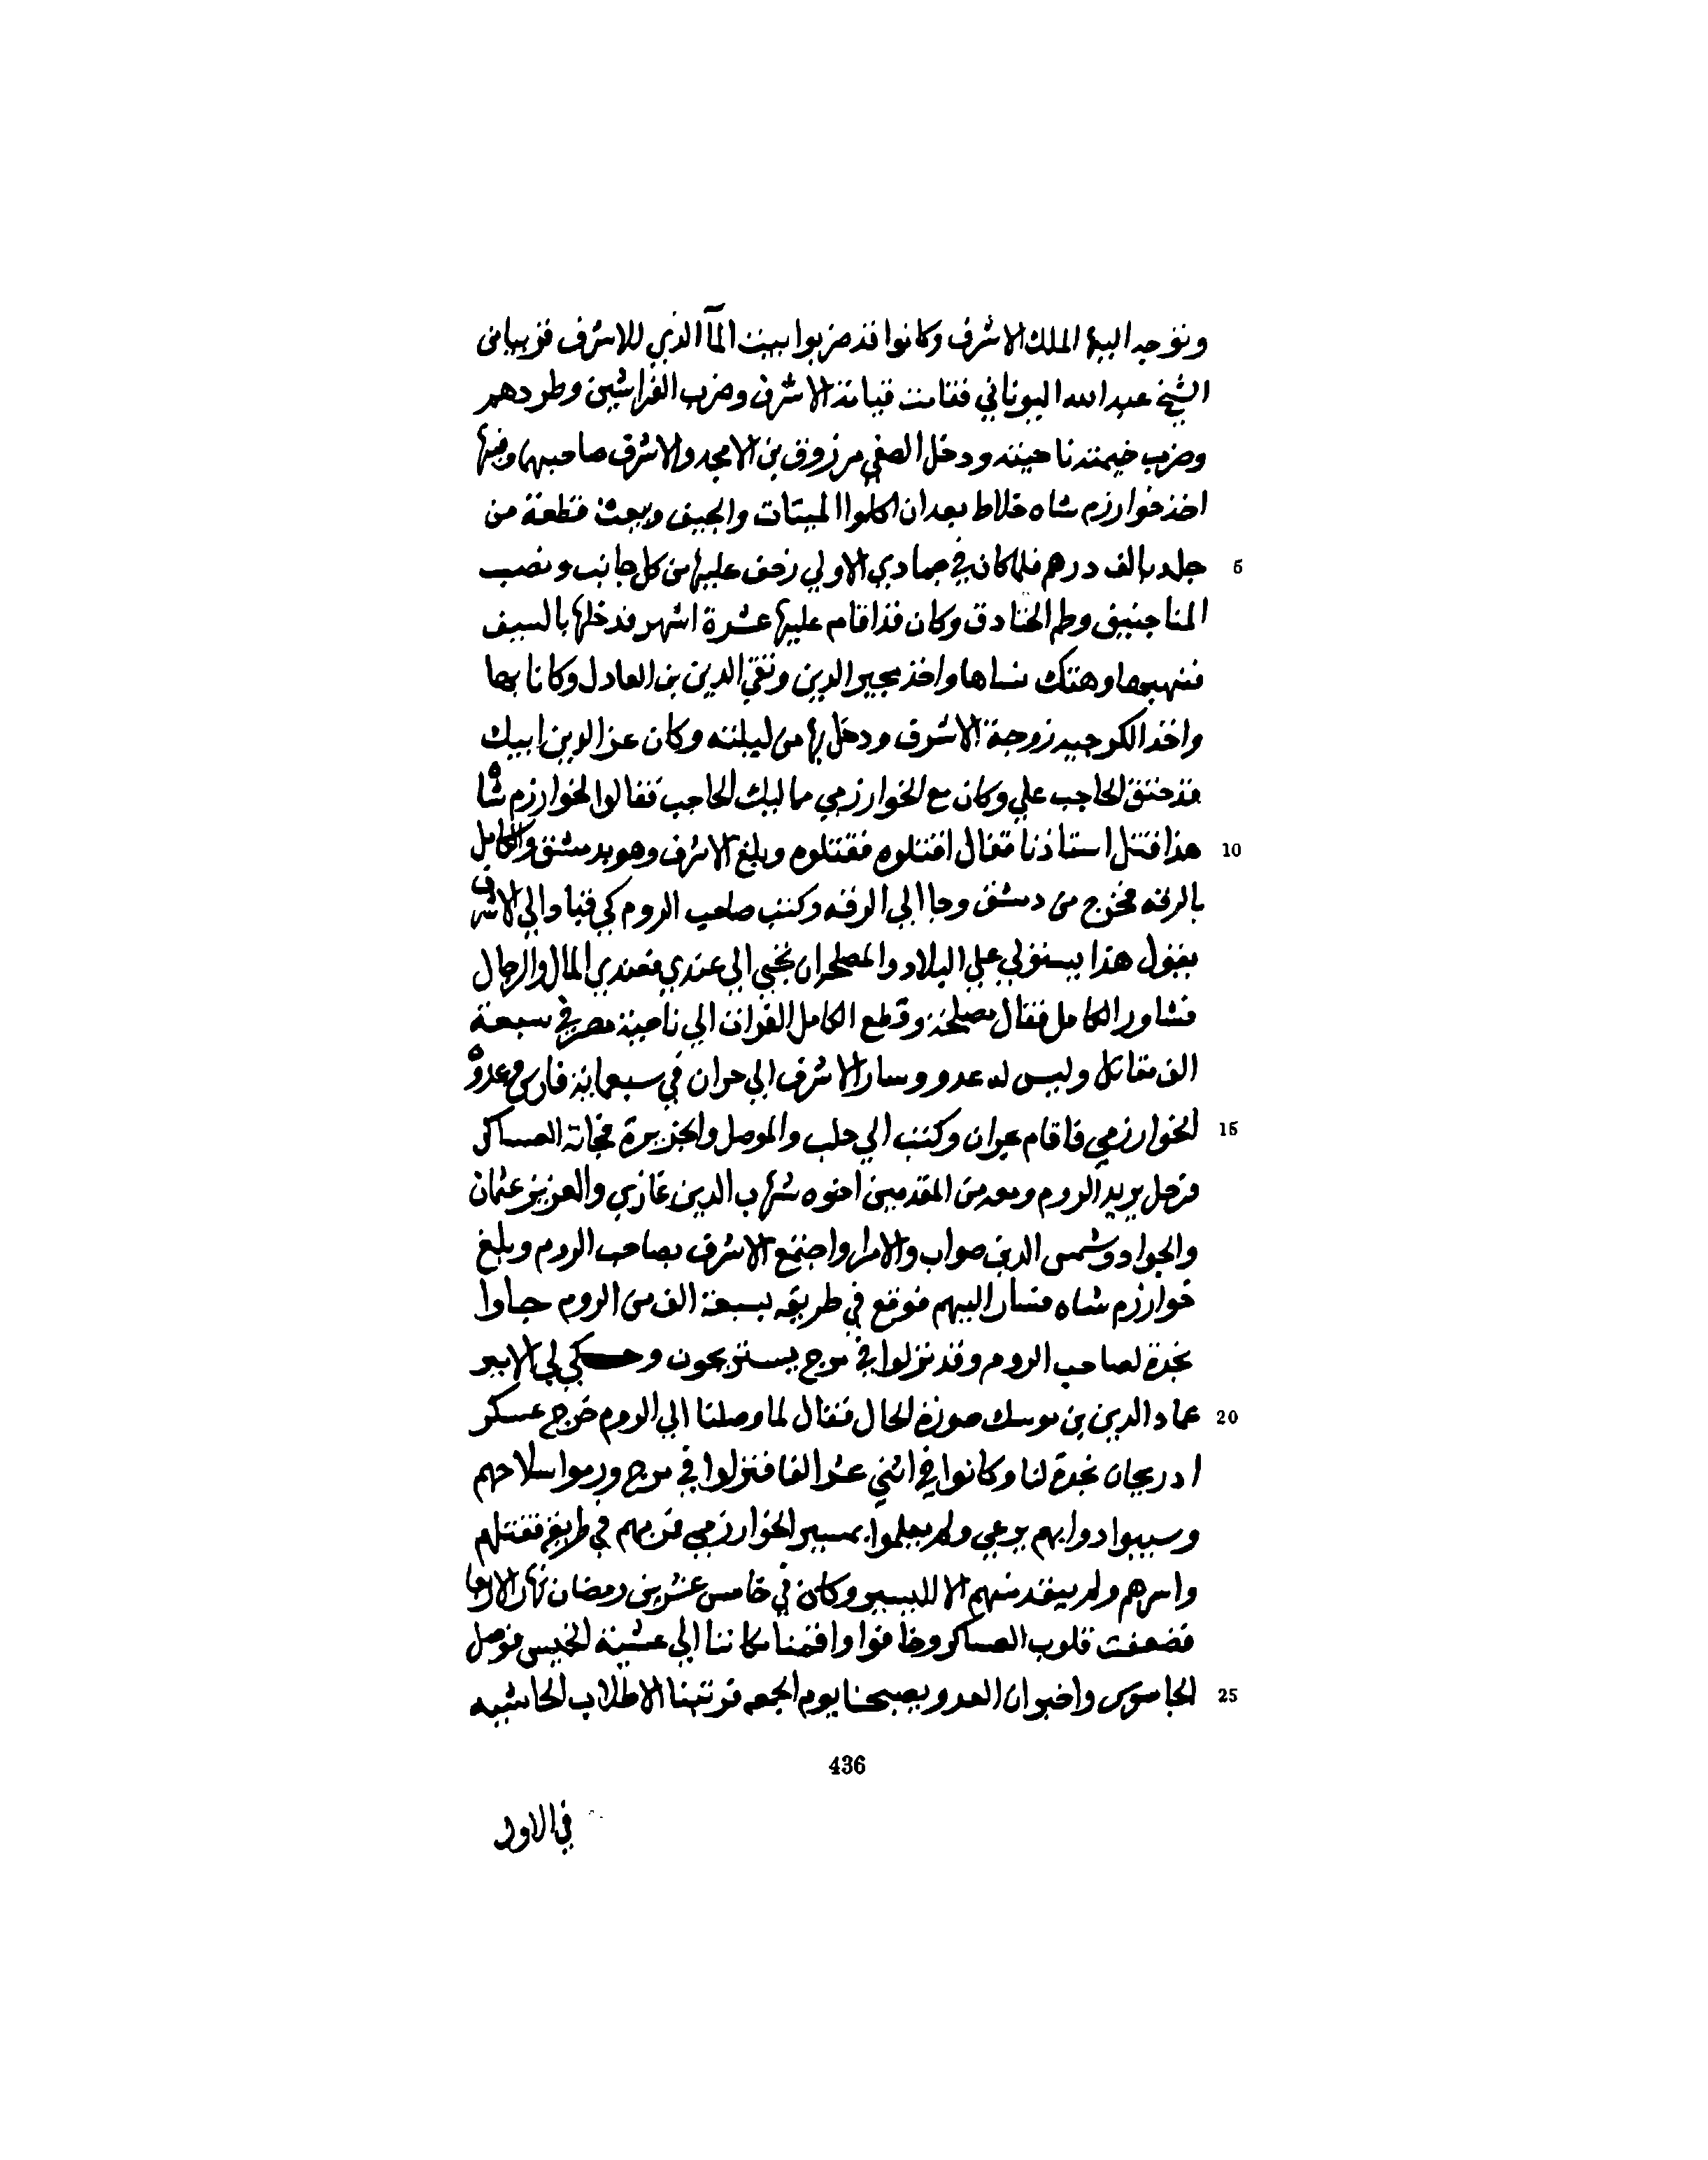 وتوجه اليها الملك الاشرف وكانوا قد ضربوا بيت المآ الذي للاشرف قريبا من
الشيخ عبد الله اليوناني فقامت قيامة الاشرف وضرب الفراشين وطردهم
وضرب خيمته ناحيته ودخل الصفي مرزوق بين الامجد والاشرف صاحبها وفيها
اخذ خوارزم شاه خلاط بعد ان اكلوا الميتات والجيف وبيعت قطعة من
جلد بالف درهم فلما كان في جمادي الاولي زحف عليها من كل جانب ونصب 5
المناجنيق وطم الخنادق وكان قد اقام عليها عشرة اشهر فدخلها بالسيف
فنهبها وهتك نساها واخذ مجير الدين وتقي الدين بن العادل وكانا بها
واخذ الكرجيه زوجة الاشرف ودخل بها من ليلته وكان عز الدين ايبك
قد خنق الحاجب علي وكان مع الخوارزمي مماليك الحاجب فقالوا لخوارزم شاه
هذا قتل استاذنا فقال اقتلوه فقتلوه وبلغ الاشرف وهو بدمشق والكامل 10
بالرقه فخرج من دمشق وجا الي الرقه وكتب صاحب الروم كي قباد الي الاشرف
يقول هذا يستولي علي البلاد والمصلحه ان تجي الي عندي فعندي المال والرجال
فشاور الكامل فقال مصلحة وقطع الكامل الفراة الي ناحية مصر في سبعة
الف مقاتل وليس له عدو وسار الاشرف الي حران في سبعماية فارس وعدوه
الخوارزمي فاقام بحران وكتب الي حلب والموصل والجزيرة فجاته العساكر 15
فرحل يريد الروم ومعه من المقدمين اخوه شهاب الدين غازي والعزيز عثمان
والجواد وشمس الدين صواب والامرا واجتمع الاشرف بصاحب الروم وبلغ
خوارزم شاه فسار اليهم فوقع في طريقه بسبعة الف من الروم جاوا
نجدة لصاحب الروم وقد نزلوا في مرج يستريحون وحكي لي الامير
عماد الدين بن موسك صورة الحال فقال لما وصلنا الي الروم خرج عسكر 20
ادربيجان نجدة لنا وكانوا في اثني عشر الفا فنزلوا في مرج ورموا سلاحهم
وسيبوا دوابهم ترعي ولم يعلموا بمسير الخوارزمي فمر بهم في طريقه فقتلهم
واسرهم ولم يفلت منهم الا اليسير وكان في خامس عشرين رمضان نهار الاربعا
فضعفت قلوب العساكر وخافوا واقمنا مكاننا الي عشية الخميس فوصل
الجاسوس واخبر ان العدو يصبحنا يوم الجمعه فرتبنا الاطلاب الحاشيه 25
436
في الاول